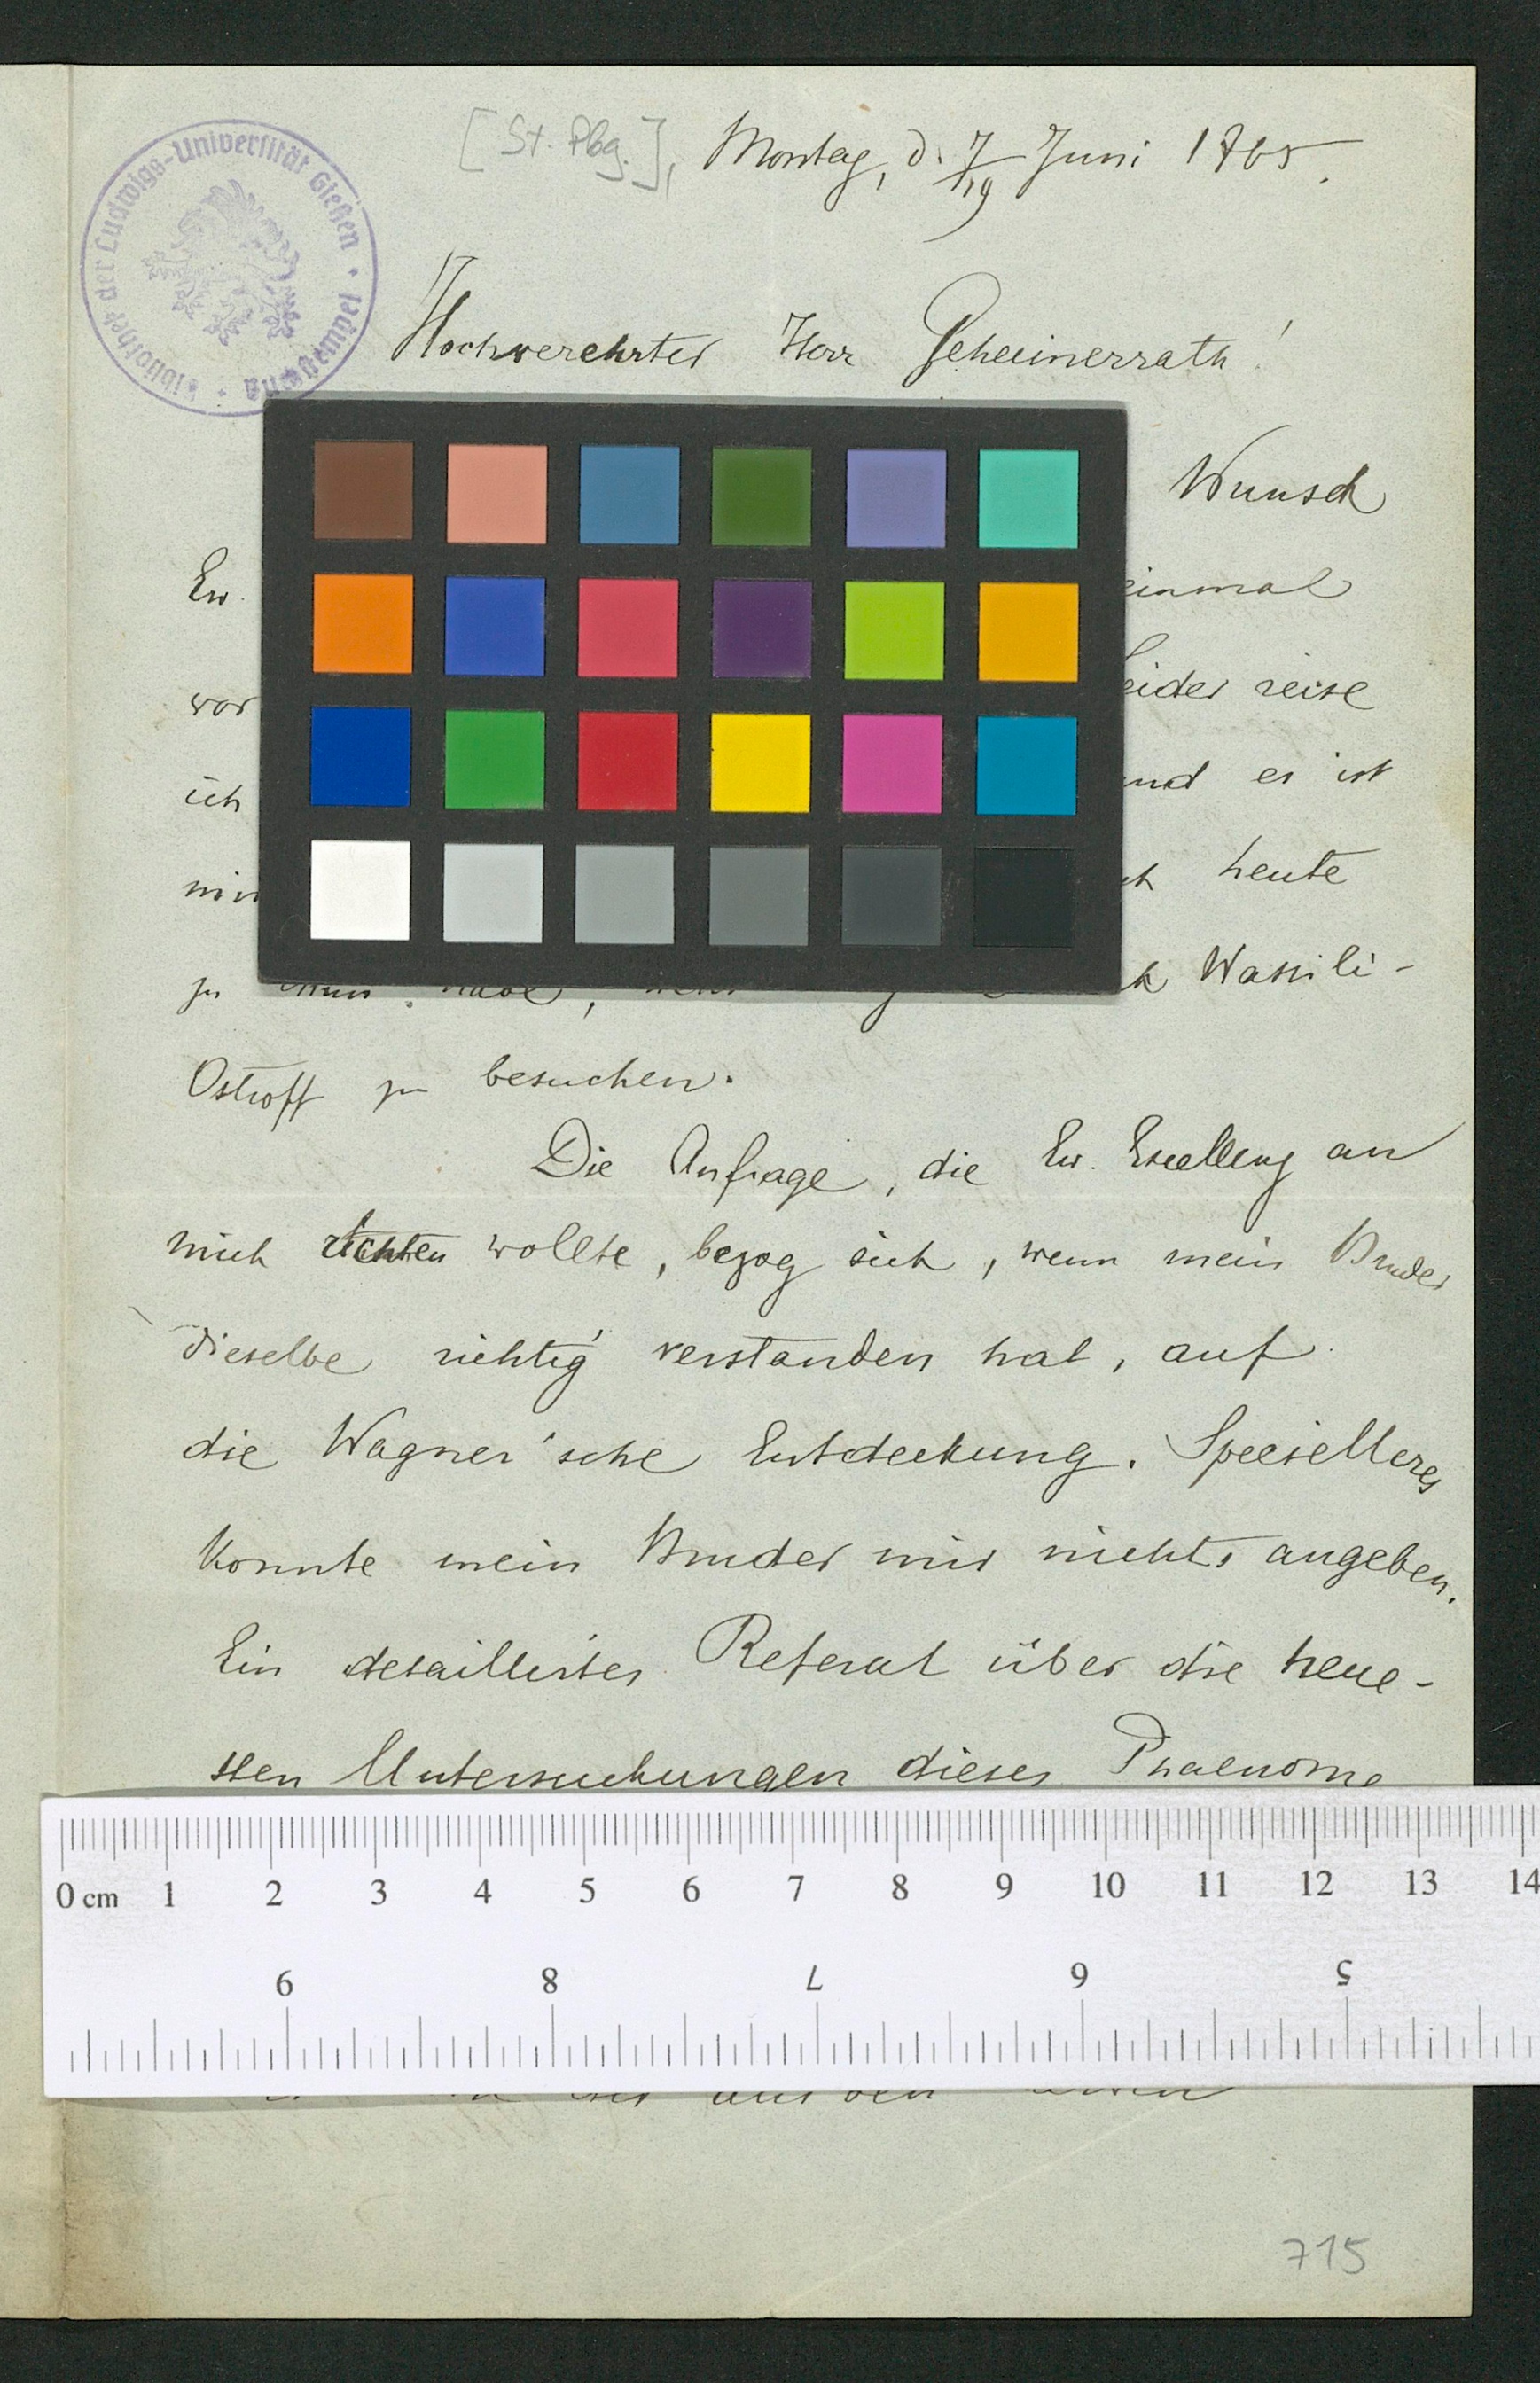 [St. Pbg.], Montag, d. 7/19 Juni 1865.
Bibliothek der Ludwigs-Universität Gießen · Tauschstempel ·
Hochverehrter Herr Geheimerrath!
Wunsch
Ew. einmal
vor leider reise
ich und es ist
mir heute
zu thun habe, Wassili-
Ostroff zu besuchen.
Die Anfrage, die Ew. Excellenz an
mich richten wollte, bezog sich, wenn mein Bruder
dieselbe richtig verstanden hat, auf
die Wagner'sche Entdeckung. Specielleres
konnte mein Bruder mir nichts angeben.
Ein detaillirtes Referat über die neue-
sten Untersuchungen dieses Phaenome
0 cm 1 2 3 4 5 6 7 8 9 10 11 12 13 14
9 8 7 6 5
aus den
715